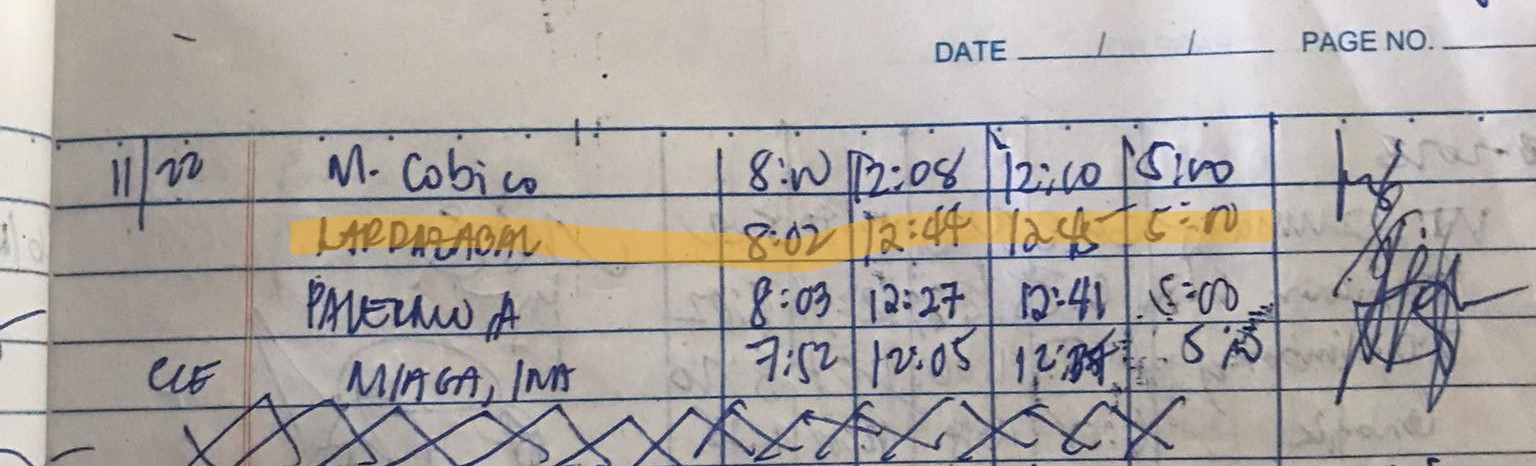 DATE / / PAGE NO.
11/22 M. Cobico 8:00 12:08 12:10 5:00
LARDAZABAL 8:02 12:44 12:45 5:00
PALERMO, A 8:03 12:27 12:41 5:00
CCE MIAGA, INA 7:52 12:05 5:00